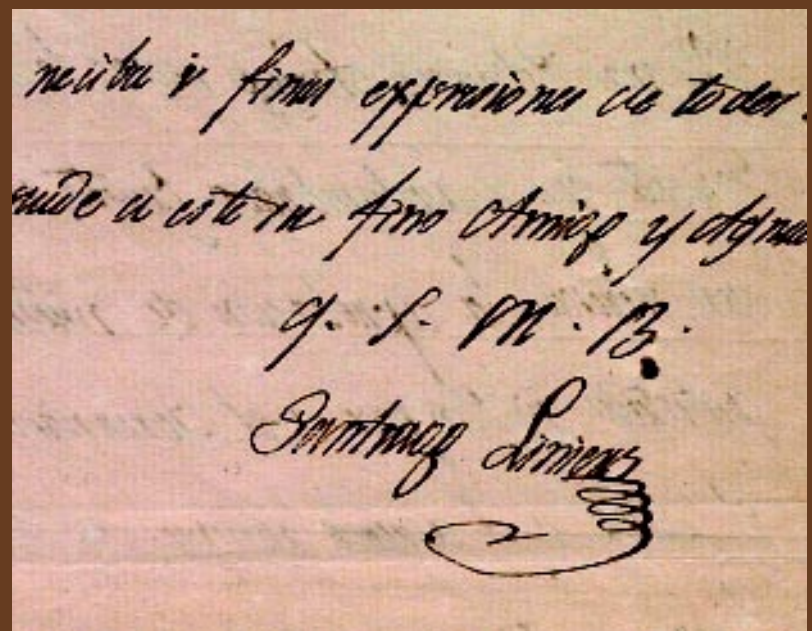 reciba v finas expresiones de todos
mande a este su fino Amigo y
q. S. M. B.
Santiago Liniers